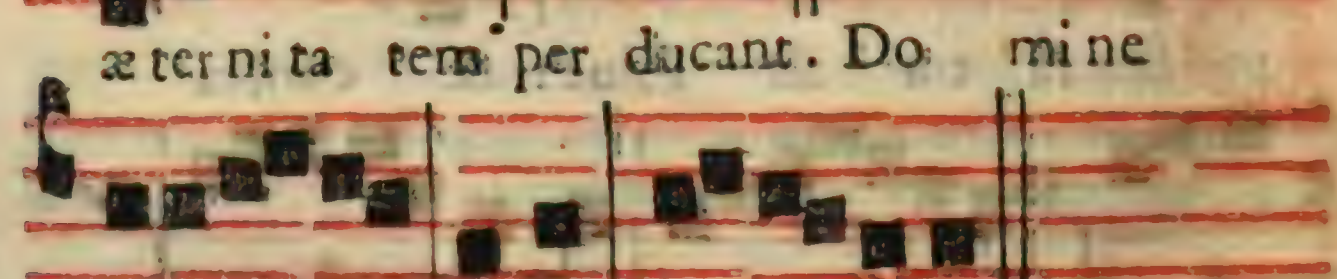 æ ter ni ta tem per ducant. Do mi ne